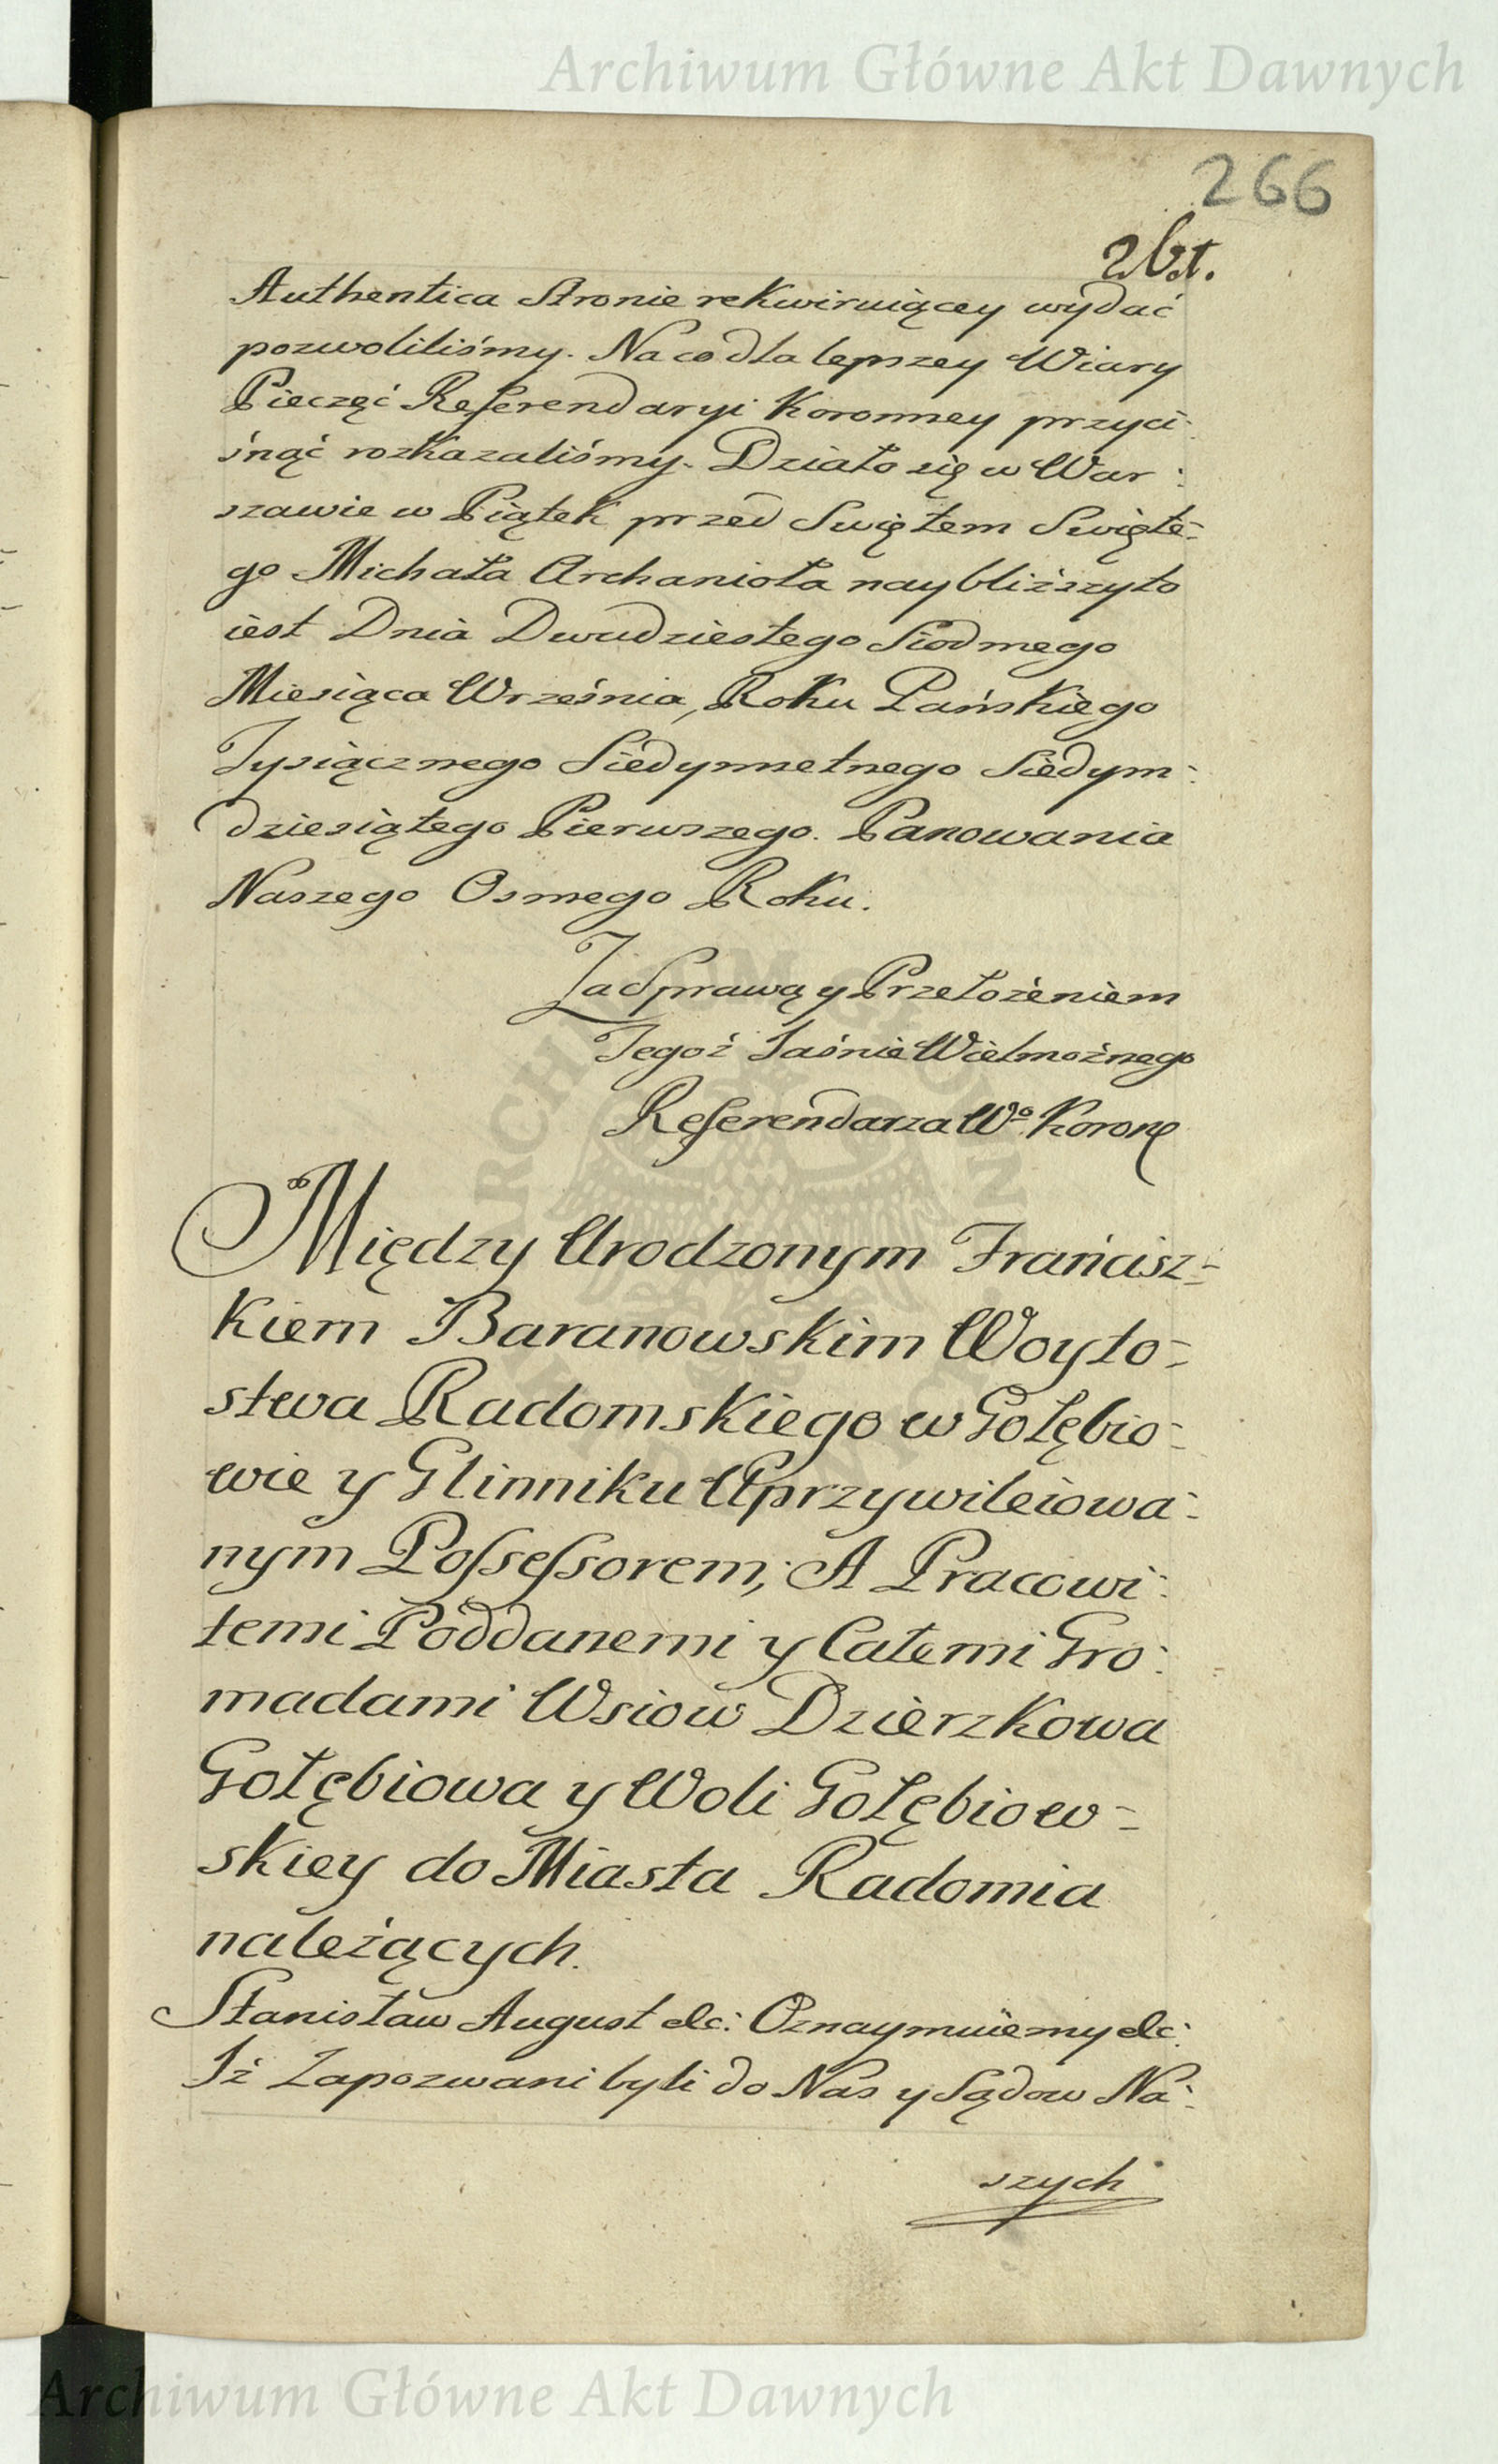 Archiwum Główne Akt Dawnych
266
Authentica Stronie rekwiruiącey wydać
pozwoliliśmy. Na co dla lepszey Wiary
Pieczęć Referendaryi Koronney przyci-
snąć rozkazaliśmy. Działo się w War:
szawie w Piątek przed Swiętem Swięte-
go Michała Archanioła naybliższy to
iest Dnia Dwudziestego Siodmego
Miesiąca Września, Roku Pańskiego
Tysiącznego Siedymsetnego Siedym:
dziesiątego Pierwszego. Panowania
Naszego Osmego Roku.
Za Sprawą y Przełożeniem
Tegoż Jaśnie Wielmożnego
Referendarza Wo. Koronę
Między Urodzonym Francisz-
kiem Baranowskim Woyto-
stwa Radomskiego w Gołębio-
wie y Glinniku Uprzywileiowa-
nym Possessorem; A Pracowi-
temi Poddanemi y Całemi Gro-
madami Wsiow Dzierzkowa
Gołębiowa y Woli Gołębiow-
skiey do Miasta Radomia
należących.
Stanisław August etc: Oznaymuiemy etc:
Iż Zapozwani byli do Nas y Sądow Na-
szych
Archiwum Główne Akt Dawnych